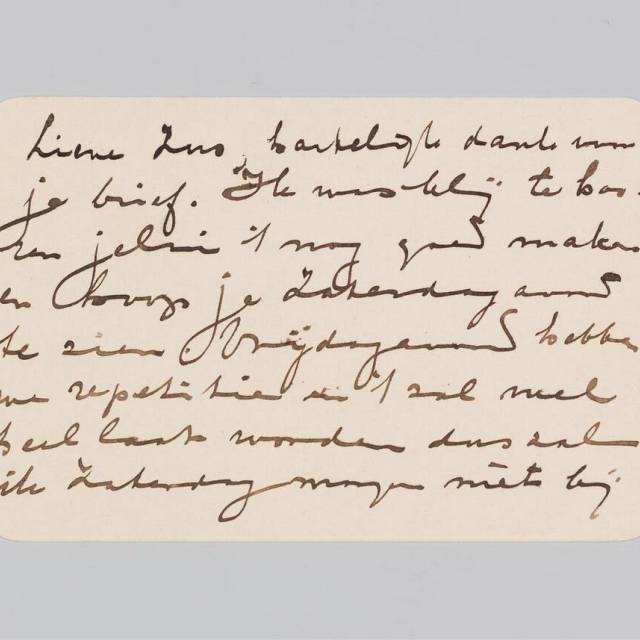 Lieve Zus, hartelijk dank voor
je brief. Ik was blij te hoo-
ren jelui 't nog goed maken
en hoop je Zaterdagavond
te zien. Vrijdagavond hebben
we repetitie en 't zal wel
heel laat worden dus zal
ik Zaterdag morgen niet bij